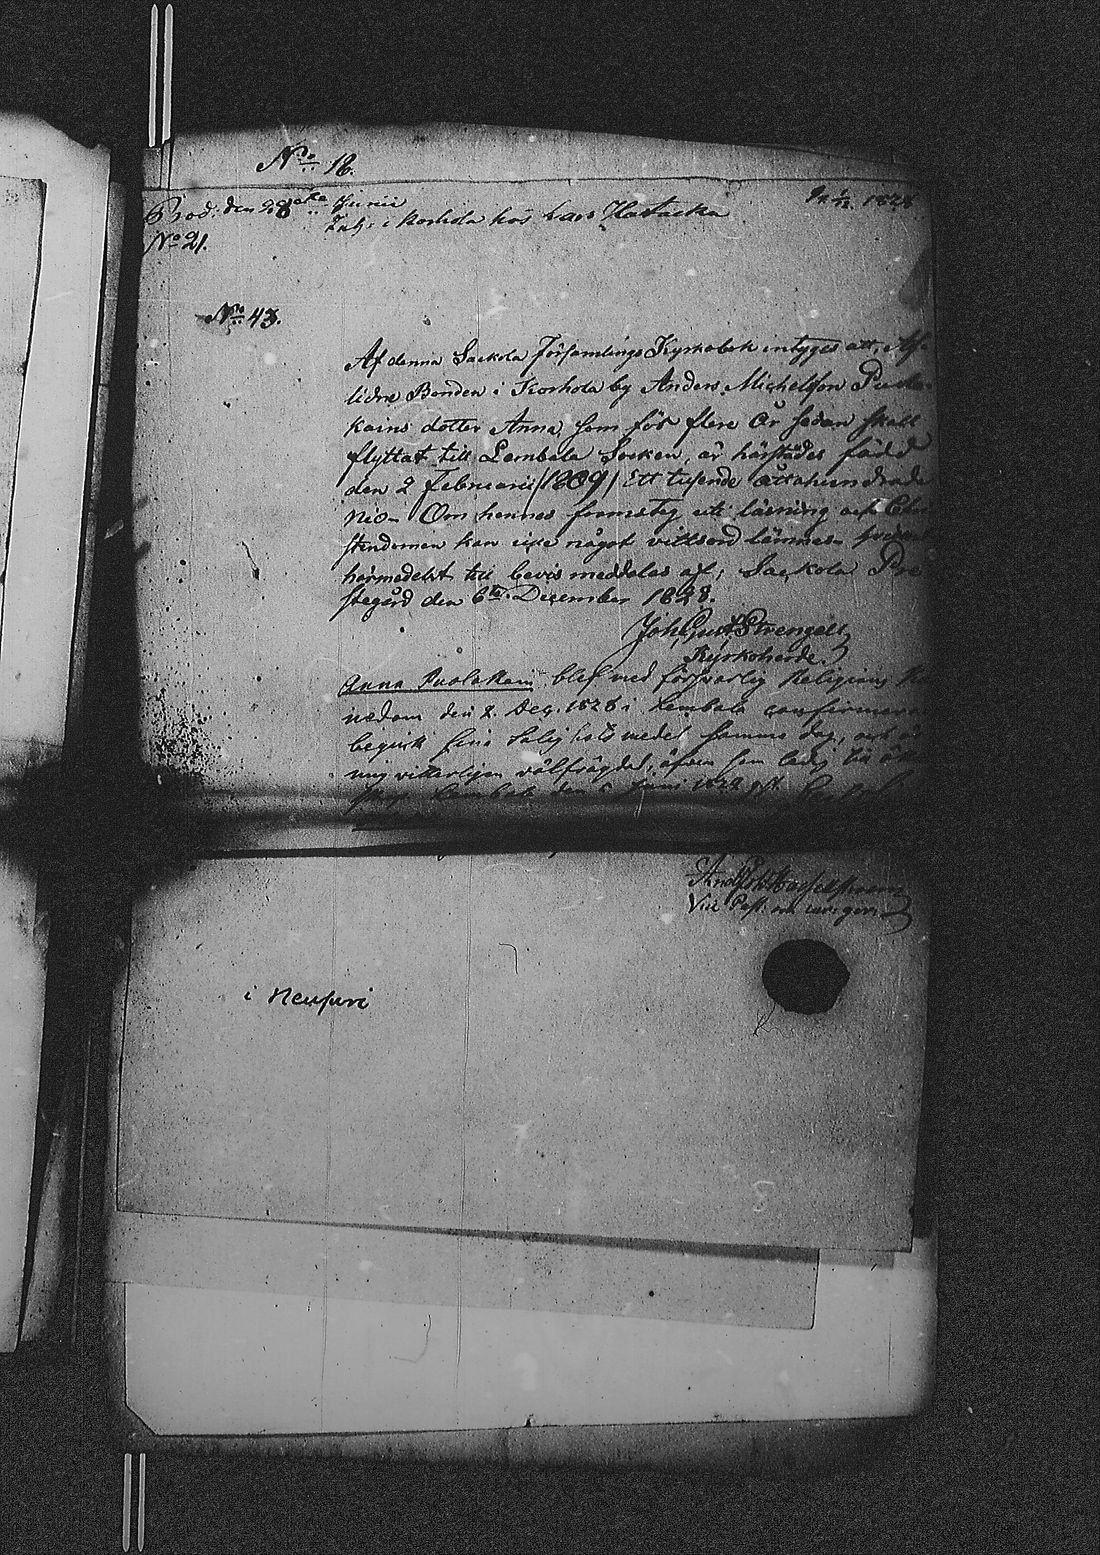 No 18.
Prod: den 28de Junii
Inh: i Korhola hos Lars Hatacka
No 21.
No 43.
Af denna Sackola Församlings Kyrkobok intyges att, Af-
lidne Bonden i Korhola by Anders Michelsson Puola-
kains dotter Anna, som för flere År sedan skall
flyttat till Lembala Socken, är härstädes född
den 2 Februarii /1809/ Ett tusende åttahundrade
nio- Om hennes framsteg uti läsning och Chri
stendomen kan icke något vittsord lämnas
härmedelst till bevis meddelas af; Sackola Pre
stegård den 6te December 1828.
Joh Gust Strengell
Kyrkoherde.
Anna Puolakain blef med försvarlig Religions
den 2. Dec. 1828 i Lembala confirmera
begick sine Salighetsmedel samma dag, och är
mig vitterligen välfrägdad, äfven som ledig
Lembala den 6 Juni 1829
Vice Past:
i Neusuri